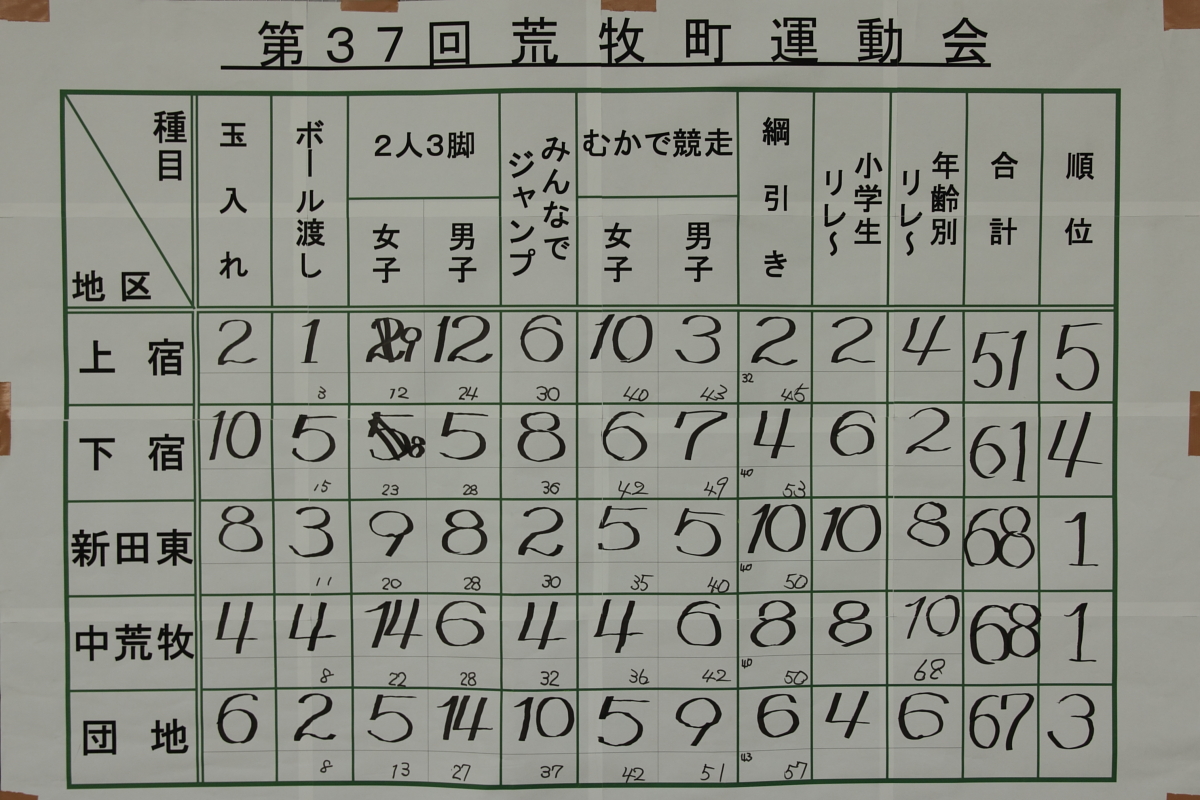 第37回 荒牧町運動会
種目
地区
玉入れ
ボール渡し
2人3脚
女子
男子
みんなで
ジャンプ
むかで競走
女子
男子
綱引き
小学生
リレ～
年齢別
リレ～
合計
順位
上宿 2 1 9 12 6 10 3 2 2 4 51 5
3 12 24 30 40 43 32 45
下宿 10 5 8 5 8 6 7 4 6 2 61 4
15 23 28 36 42 49 40 53
新田東 8 3 9 8 2 5 5 10 10 8 68 1
11 20 28 30 35 40 40 50
中荒牧 4 4 14 6 4 4 6 8 8 10 68 1
8 22 28 32 36 42 40 50 68
団地 6 2 5 14 10 5 9 6 4 6 67 3
8 13 27 37 42 51 43 57